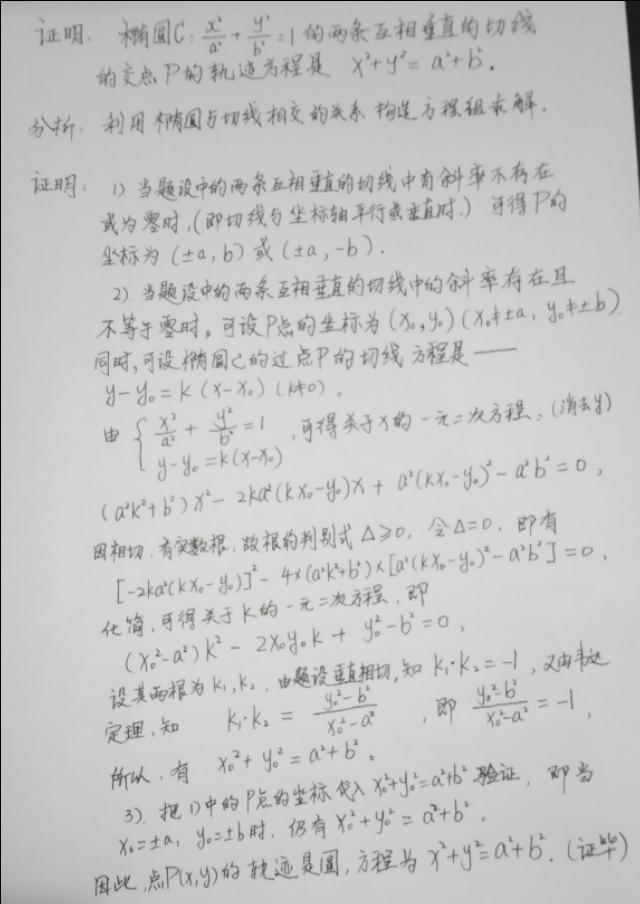 证明. 椭圆C: x²/a² + y²/b² = 1 的两条互相垂直的切线
的交点P的轨迹方程是 x²+y² = a²+b².
分析: 利用椭圆与切线相交的关系构造方程组求解.
证明: 1) 当题设中的两条互相垂直的切线中有斜率不存在
或为零时, (即切线与坐标轴平行或垂直时.) 可得P的
坐标为 (±a, b) 或 (±a, -b).
2). 当题设中的两条互相垂直的切线中的斜率存在且
不等于零时, 可设P点的坐标为 (x₀, y₀) (x₀≠±a, y₀≠±b)
同时, 可设椭圆C的过点P的切线方程是——
y-y₀ = k (x-x₀) (k≠0).
由 { x²/a² + y²/b² = 1 , 可得关于x的一元二次方程: (消去y)
y-y₀ = k(x-x₀)
(a²k²+b²) x² - 2ka²(kx₀-y₀)x + a²(kx₀-y₀)² - a²b² = 0 ,
因相切, 有实数根, 故根的判别式 Δ≥0, 令Δ=0, 即有
[-2ka²(kx₀-y₀)]² - 4×(a²k²+b²)×[a²(kx₀-y₀)² - a²b²] = 0 ,
化简, 可得关于k的一元二次方程, 即
(x₀²-a²) k² - 2x₀y₀k + y₀²-b² = 0 ,
设其两根为 k₁, k₂ , 由题设垂直相切, 知 k₁·k₂ = -1 , 又由韦达
定理, 知 k₁·k₂ = (y₀²-b²)/(x₀²-a²) , 即 (y₀²-b²)/(x₀²-a²) = -1 ,
所以, 有 x₀²+y₀² = a²+b² 。
3). 把1)中的P点的坐标代入 x₀²+y₀²=a²+b² 验证, 即当
x₀=±a, y₀=±b时, 仍有 x₀²+y₀² = a²+b² .
因此, 点P(x,y)的轨迹是圆, 方程为 x²+y²=a²+b². (证毕)